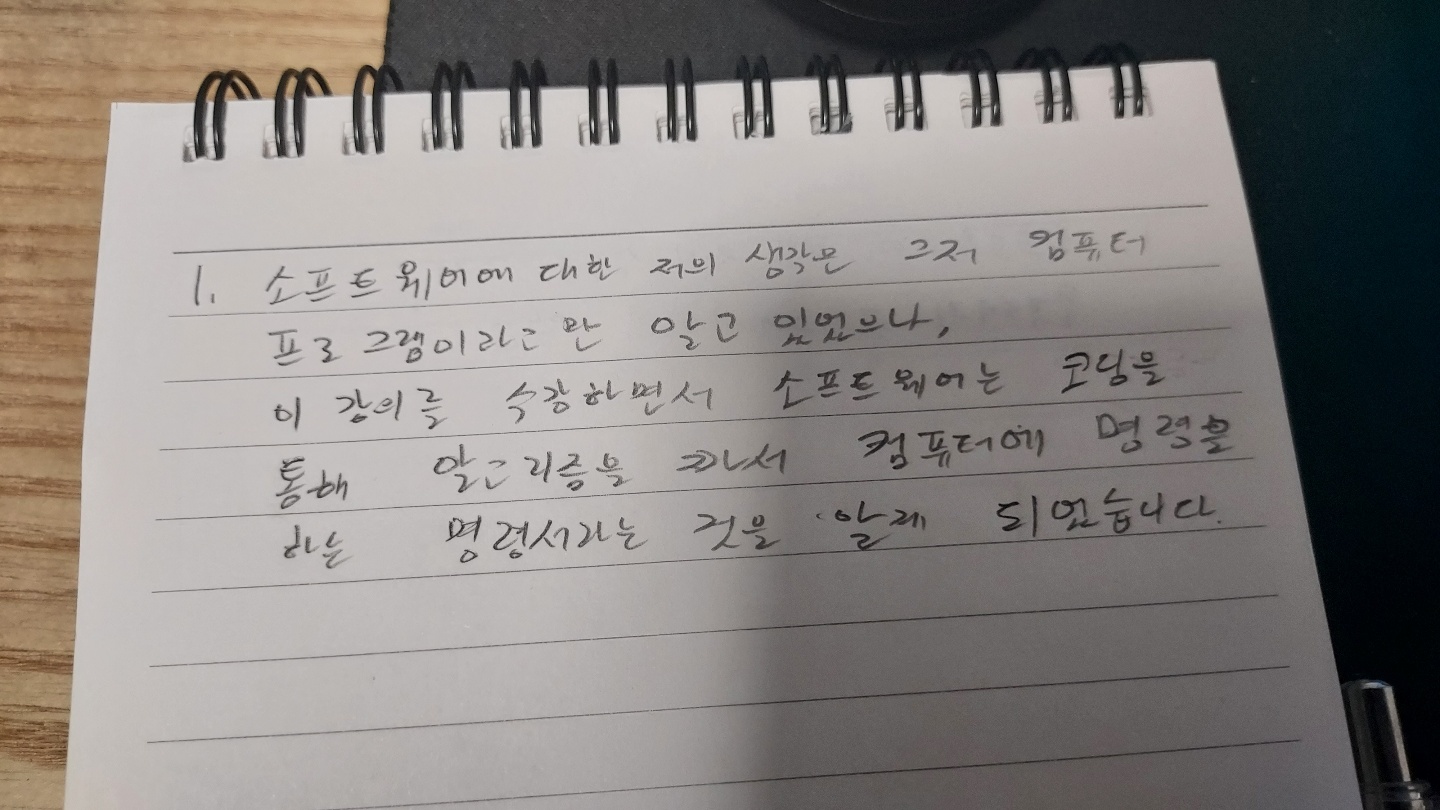 1. 소프트웨어에 대한 저의 생각은 그저 컴퓨터
프로그램이라고만 알고 있었으나,
이 강의를 수강하면서 소프트웨어는 코딩을
통해 알고리즘을 짜서 컴퓨터에 명령을
하는 명령서라는 것을 알게 되었습니다.